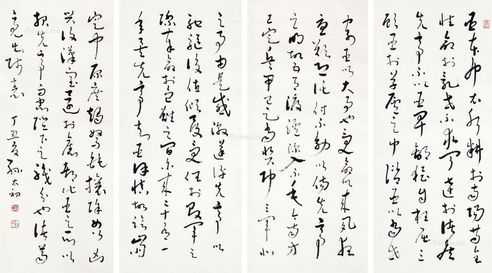 臣本布衣躬耕於南陽苟全
性命於亂世不求聞達於諸侯
先帝不以臣卑鄙猥自枉屈三
顧臣於草廬之中諮臣以當世
寄臣以大事也受命以來夙夜
憂歎恐託付不效以傷先帝
之明故五月渡瀘深入不毛今南方
已定兵甲已足當獎帥三軍北
之事由是感激遂許先帝以
驅馳後值傾覆受任於敗軍之
際奉命於危難之間爾來二十有一
年矣先帝知臣謹慎故臨崩
定中原庶竭駑鈍攘除姦凶
興復漢室還於舊都此臣之所以
報先帝而忠陛下之職分也諸葛
亮出師表 丁丑夏